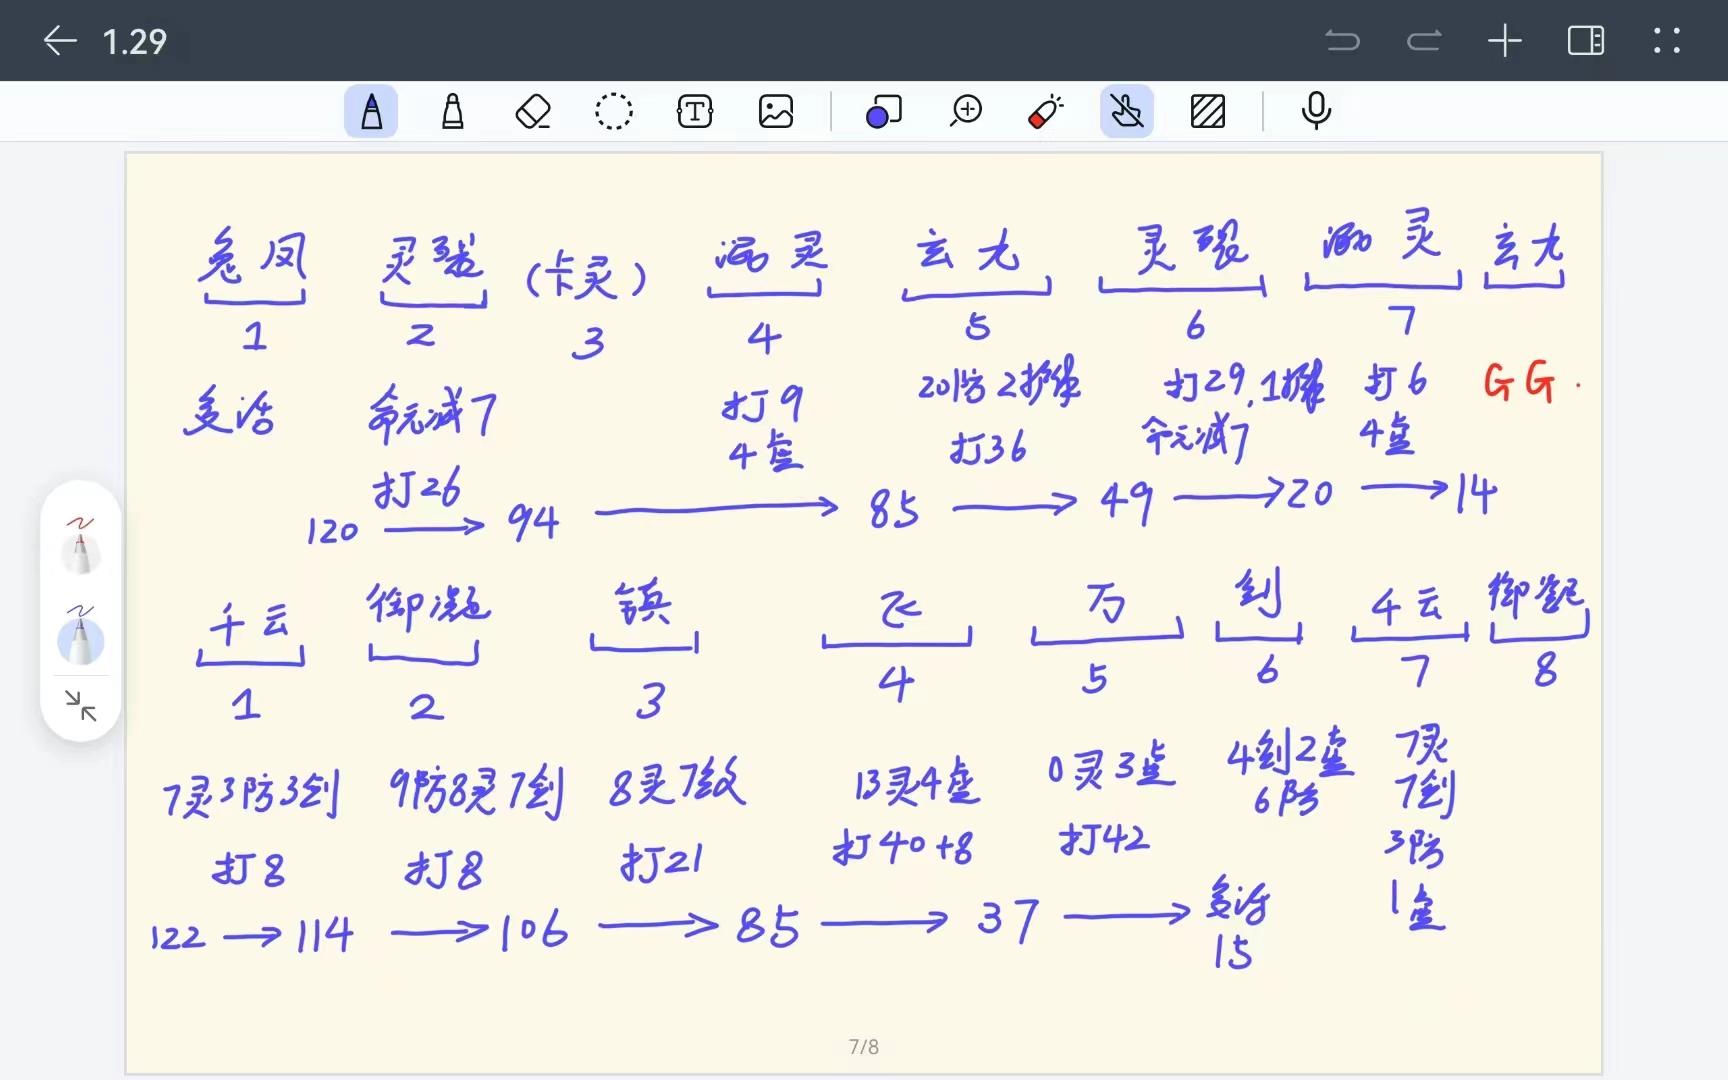 1.29
兔凤 灵 (卡灵) 涡灵 玄九 灵 涡灵 玄九
1 2 3 4 5 6 7
复活 命元减7 打9 20防2 打29, 1 打6 GG.
4盘 打36 命元减7 4盘
打26
120 → 94 → 85 → 49 → 20 → 14
千云 御凝 镇 飞 万 剑 千云 御凝
1 2 3 4 5 6 7 8
7灵3防3剑 9防8灵7剑 8灵7纹 13灵4盘 0灵3盘 4剑2盘 7灵
6防 7剑
打8 打8 打21 打40+8 打42 3防
1盘
122 → 114 → 106 → 85 → 37 → 复活
15
7/8